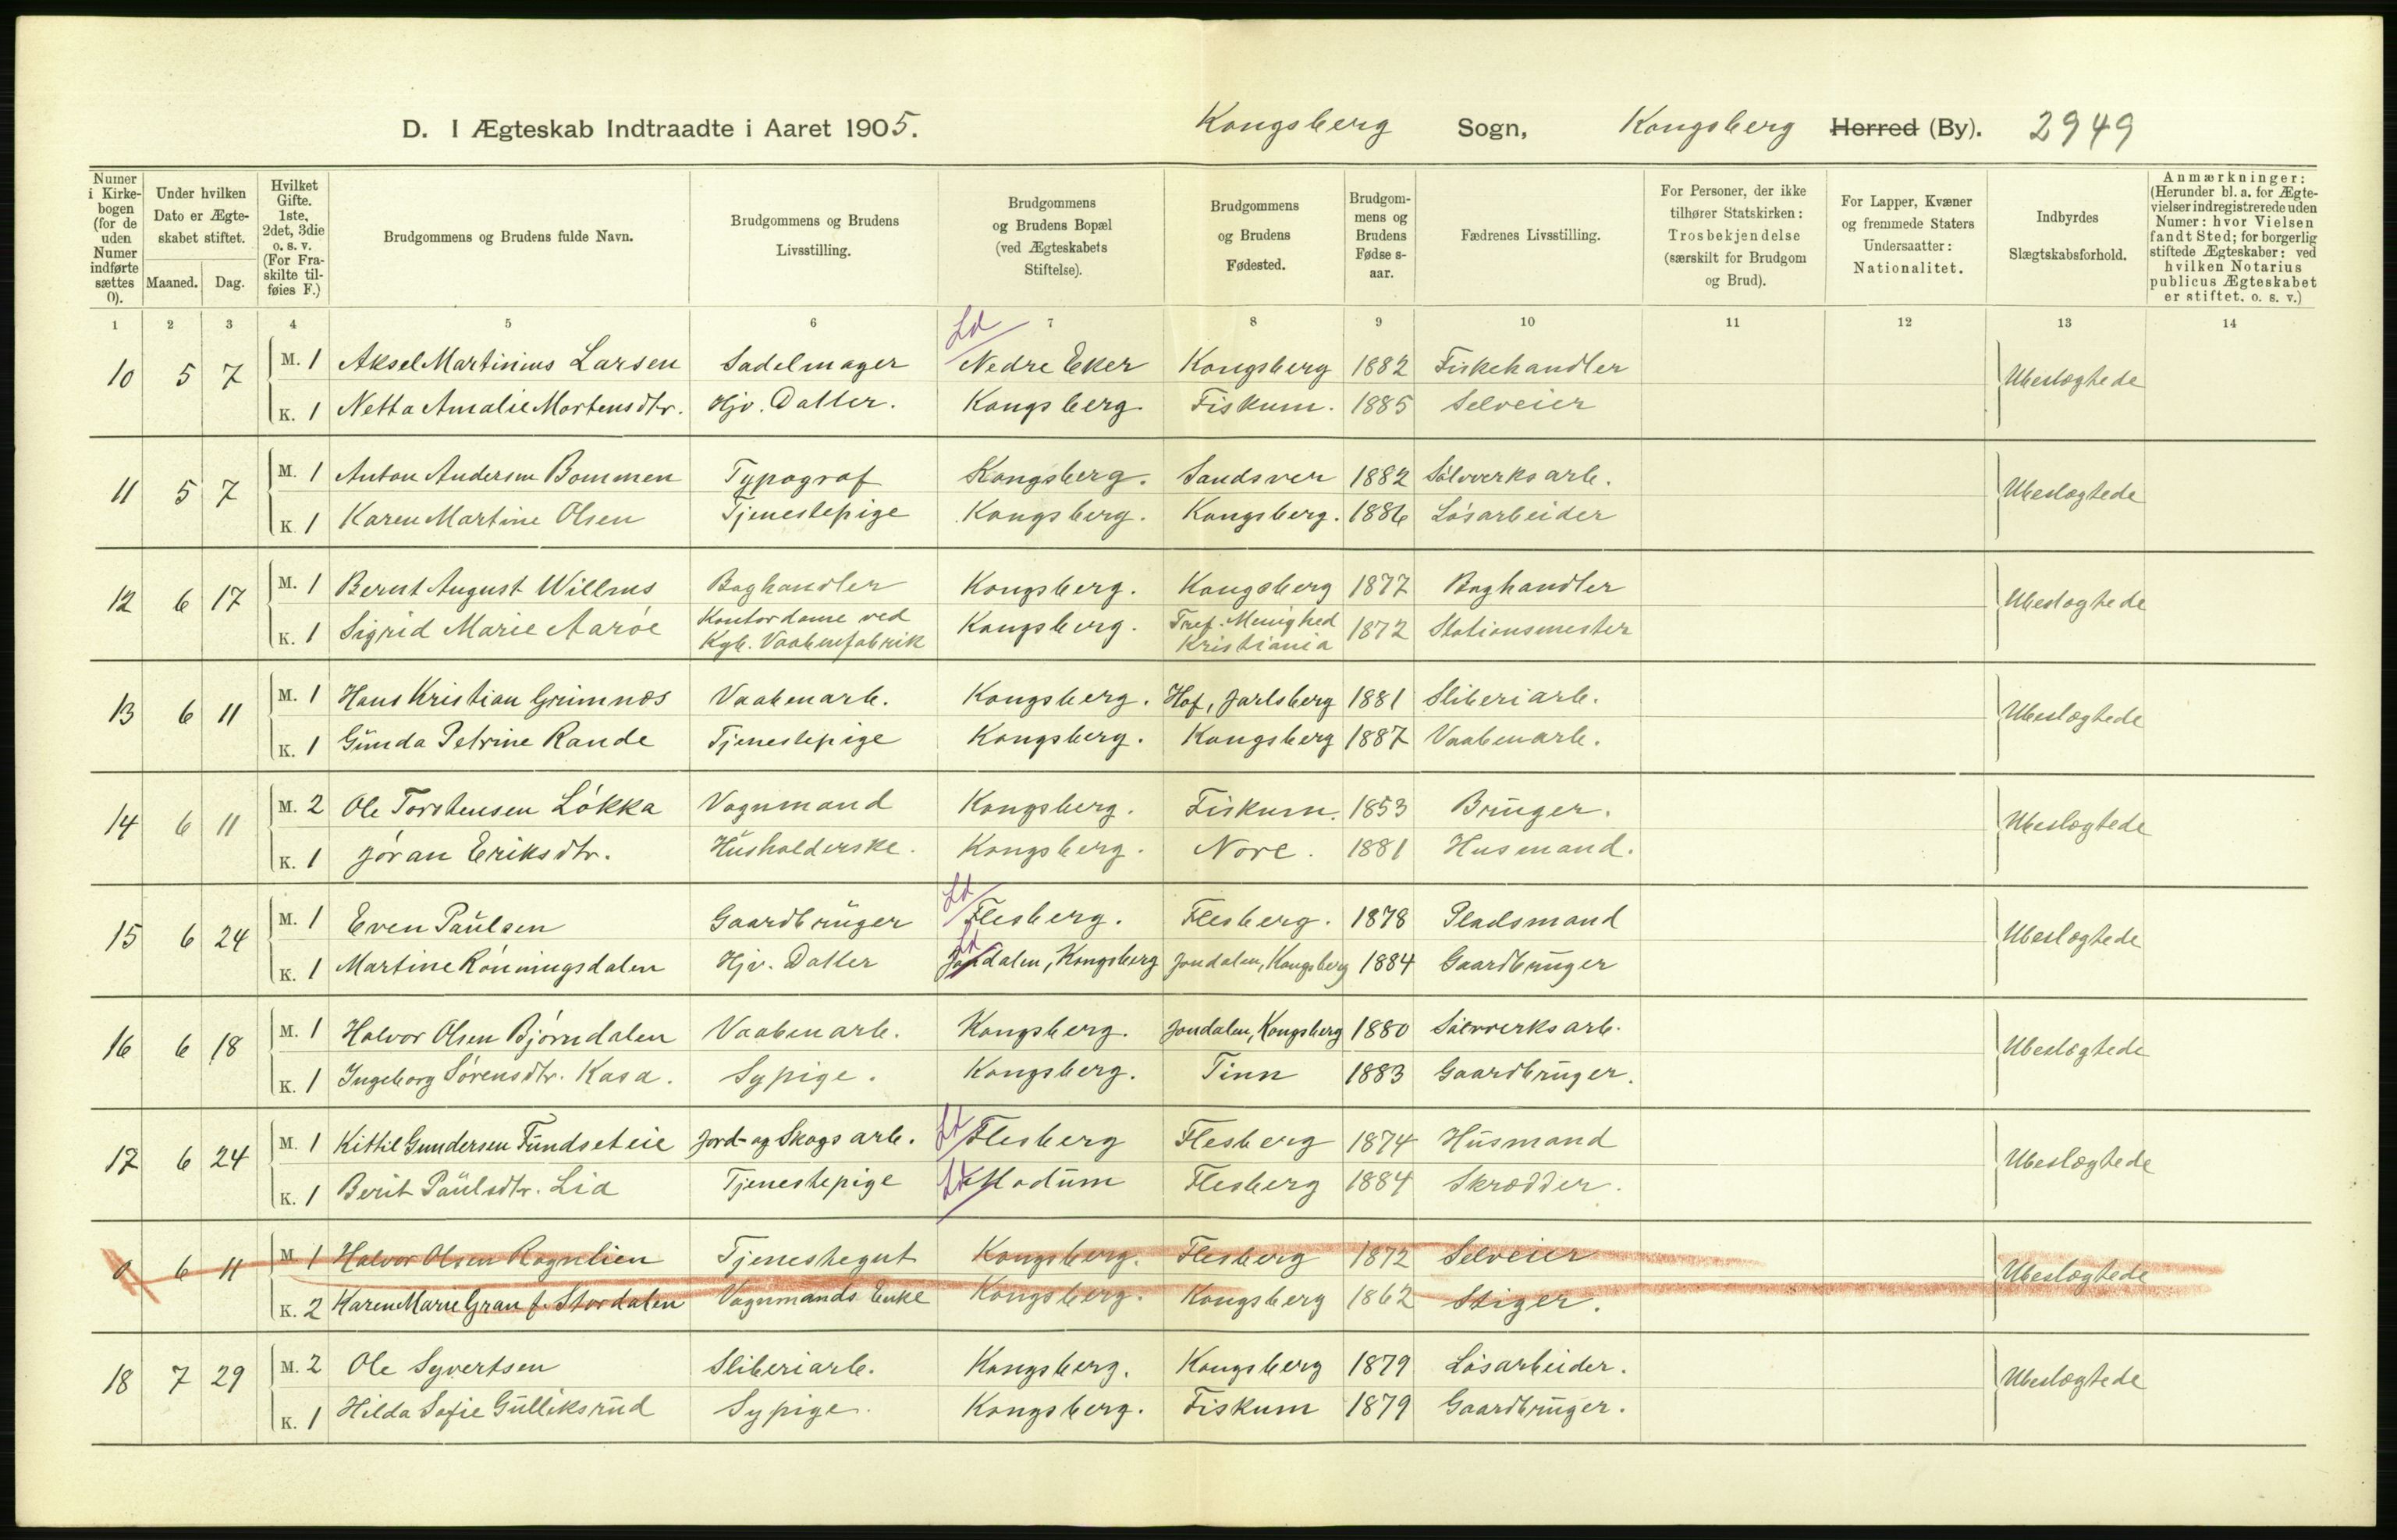 D. I Ægteskab Indtraadte i Aaret 1905. Kongsberg Sogn, Kongsberg Herred (By). 2949
Numer i Kirkebogen (for de uden Numer indførte sættes 0).
Under hvilken Dato er Ægteskabet stiftet.
Maaned. Dag.
Hvilket Gifte. 1ste, 2det, 3die o. s. v. (For Fraskilte tilføies F.)
Brudgommens og Brudens fulde Navn.
Brudgommens og Brudens Livsstilling.
Brudgommens og Brudens Bopæl (ved Ægteskabets Stiftelse).
Brudgommens og Brudens Fødested.
Brudgommens og Brudens Fødselsaar.
Fædrenes Livsstilling.
For Personer, der ikke tilhører Statskirken: Trosbekjendelse (særskilt for Brudgom og Brud).
For Lapper, Kvæner og fremmede Staters Undersaatter: Nationalitet.
Indbyrdes Slægtskabsforhold.
Anmærkninger: (Herunder bl. a. for Ægtevielser indregistrerede uden Numer: hvor Vielsen fandt Sted; for borgerlig stiftede Ægteskaber: ved hvilken Notarius publicus Ægteskabet er stiftet, o. s. v.)
1 2 3 4 5 6 7 8 9 10 11 12 13 14
Ld
10 5 7 M. 1 Aksel Martinius Larsen Sadelmager Nedre Eker Kongsberg 1882 Fiskehandler Ubeslægtede
K. 1 Netta Amalie Mortensdtr. Hjv. Datter. Kongsberg. Fiskum. 1885 Selveier
11 5 7 M. 1 Anton Andersen Bommen Typograf Kongsberg. Sandsver 1882 Sølvverksarb. Ubeslægtede
K. 1 Karen Martine Olsen Tjenestepige Kongsberg. Kongsberg. 1886 Løsarbeider
12 6 17 M. 1 Bernt August Willms Boghandler Kongsberg. Kongsberg 1877 Boghandler Ubeslægtede
K. 1 Sigrid Marie Aarøe Kontordame ved Kgb. Vaabenfabrik Kongsberg. Tref. Menighed Kristiania 1872 Stationsmester
13 6 11 M. 1 Hans Kristian Grimnæs Vaabenarb. Kongsberg. Hof, Jarlsberg 1881 Sliberiarb. Ubeslægtede
K. 1 Gunda Petrine Rande Tjenestepige Kongsberg. Kongsberg 1887 Vaabenarb.
14 6 11 M. 2 Ole Torstensen Løkka Vognmand Kongsberg. Fiskum. 1853 Bruger. Ubeslægtede
K. 1 Jøran Eriksdtr. Husholderske. Kongsberg. Nore. 1881 Husmand.
Ld
15 6 24 M. 1 Even Paulsen Gaardbruger Flesberg. Flesberg. 1878 Pladsmand Ubeslægtede
Ld
K. 1 Martine Rønningsdalen Hjv. Datter Jondalen, Kongsberg Jondalen, Kongsberg 1884 Gaardbruger
16 6 18 M. 1 Halvor Olsen Bjørndalen Vaabenarb. Kongsberg. Jondalen, Kongsberg 1880 Sølvverksarb. Ubeslægtede
K. 1 Ingeborg Sørensdtr. Kasa. Sypige. Kongsberg. Tinn 1883 Gaardbruger.
17 6 24 M. 1 Kittil Gundersen Fundseteie Jord- og Skogsarb. Ld Flesberg Flesberg 1874 Husmand Ubeslægtede
K. 1 Berit Paulsdtr. Lia Tjenestepige Ld Modum Flesberg 1884 Skrædder.
0 6 11 M. 1 Halvor Olsen Ragnlien Tjenestegut Kongsberg. Flesberg 1872 Selveier Ubeslægtede
K. 2 Karen Marie Gran f. Stordalen Vognmands Enke Kongsberg. Kongsberg 1862 Stiger.
18 7 29 M. 2 Ole Syvertsen Sliberiarb. Kongsberg. Kongsberg 1879 Løsarbeider. Ubeslægtede
K. 1 Hilda Sofie Gulliksrud Sypige. Kongsberg. Fiskum 1879 Gaardbruger.